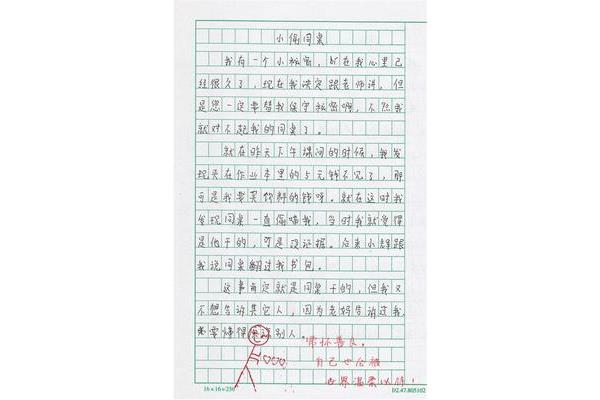 小偷同桌
我有一个小秘密,贮在我心里已
经很久了,现在我决定跟老师讲。但
是您一定要替我保守秘密啊,不然我
就对不起我的同桌了。
就在昨天下午课间的时候,我发
现夹在作业本里的5元钱不见了,那
可是我要买饮料的钱呀。就在这时我
发现同桌一直偷瞄我,当时我就觉得
是他干的,可是没证据。后来小辉跟
我说同桌翻过我书包。
这事肯定就是同桌干的,但我又
不想告诉其它人,因为老妈告诉过我
要懂得原谅别人。
常怀善良。
自己也会被
世界温柔以待!
16×16=256
02.47.805102